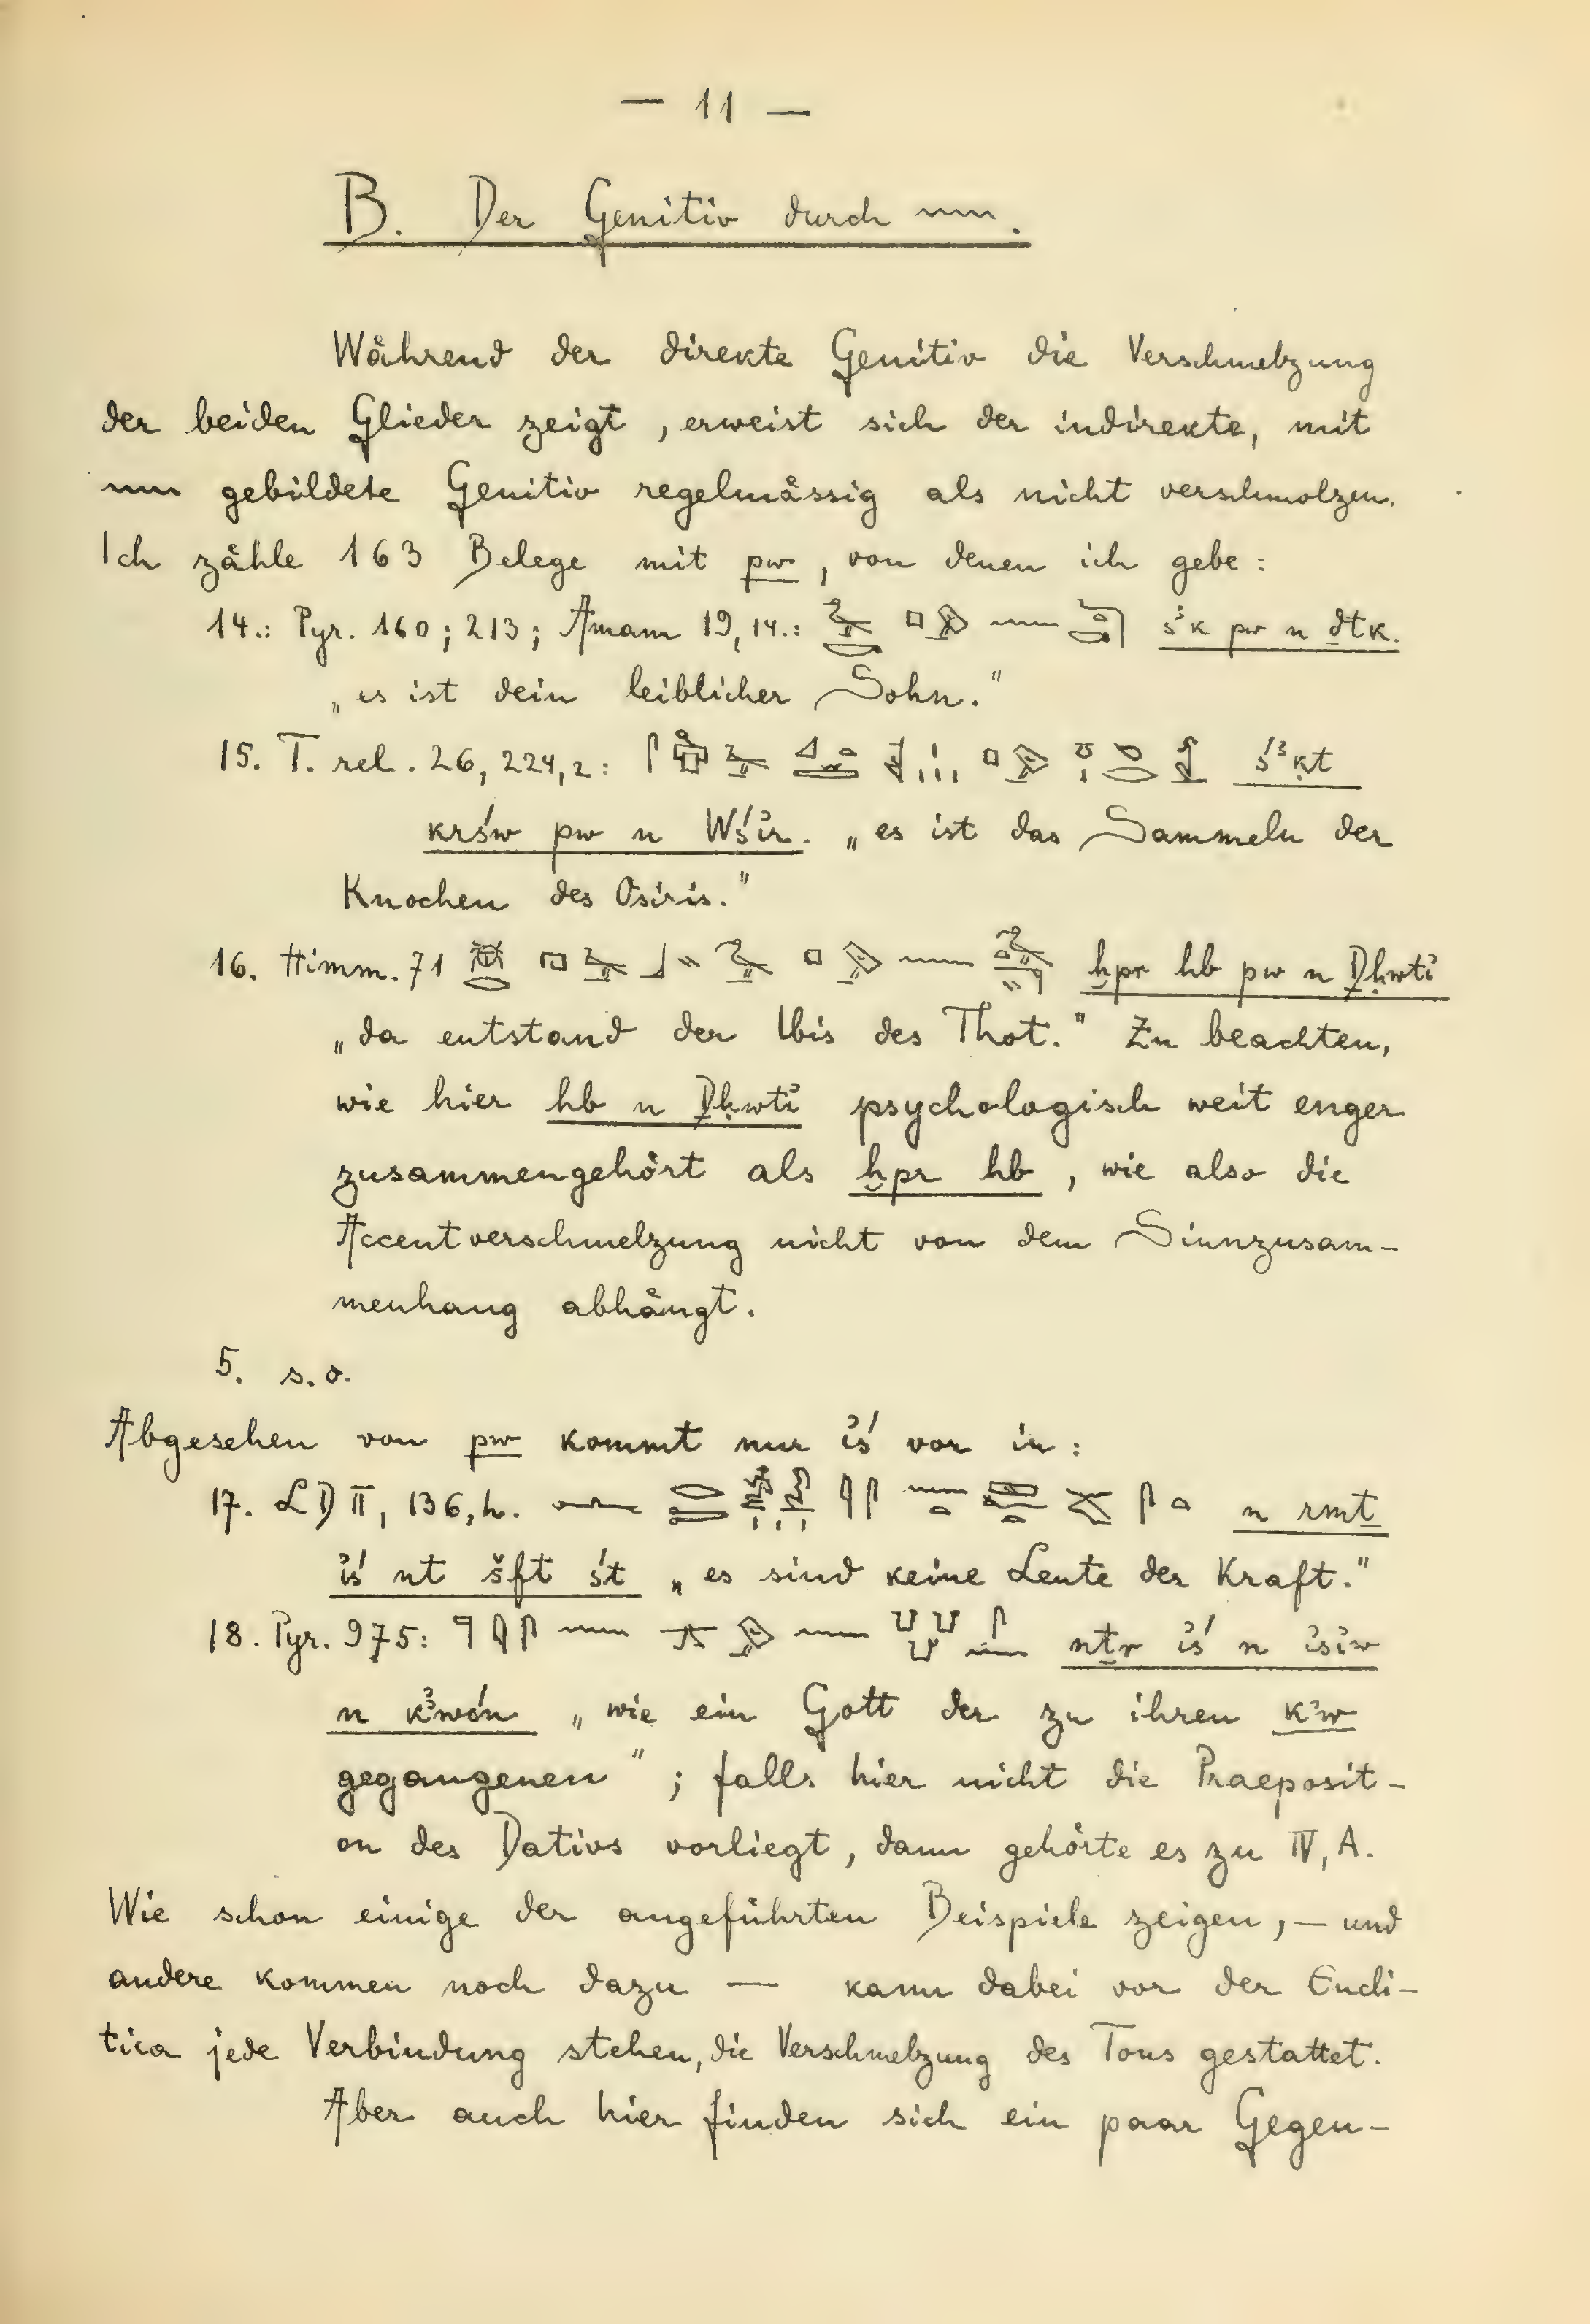 — 11 —
B. Der Genitiv durch 𓈖.
Während der direkte Genitiv die Verschmelzung
der beiden Glieder zeigt, erweist sich der indirekte, mit
𓈖 gebildete Genitiv regelmässig als nicht verschmolzen.
Ich zähle 163 Belege mit pw, von denen ich gebe:
14.: Pyr. 160; 213; Amam 19, 14.: sꜣk pw n ḏtk.
„es ist dein leiblicher Sohn."
15. T. rel. 26, 224, 2: śꜣḳt
krśw pw n Wśir. „es ist das Sammeln der
Knochen des Osiris."
16. Himm. 71 ḫpr hb pw n Ḏḥwtỉ
„da entstand der Ibis des Thot." Zu beachten,
wie hier hb n Ḏḥwtỉ psychologisch weit enger
zusammengehört als ḫpr hb, wie also die
Accentverschmelzung nicht von dem Sinnzusam-
menhang abhängt.
5. s. o.
Abgesehen von pw kommt nur ỉś vor in:
17. LD II, 136, h. n rmṯ
ỉś nt šft śt „es sind keine Leute der Kraft."
18. Pyr. 975: nṯr ỉś n ỉsỉw
n kꜣwśn „wie ein Gott der zu ihren kꜣw
gegangenen"; falls hier nicht die Praeposit-
on des Dativs vorliegt, dann gehörte es zu IV, A.
Wie schon einige der angeführten Beispiele zeigen, — und
andere kommen noch dazu — kann dabei vor der Encli-
tica jede Verbindung stehen, die Verschmelzung des Tons gestattet.
Aber auch hier finden sich ein paar Gegen-